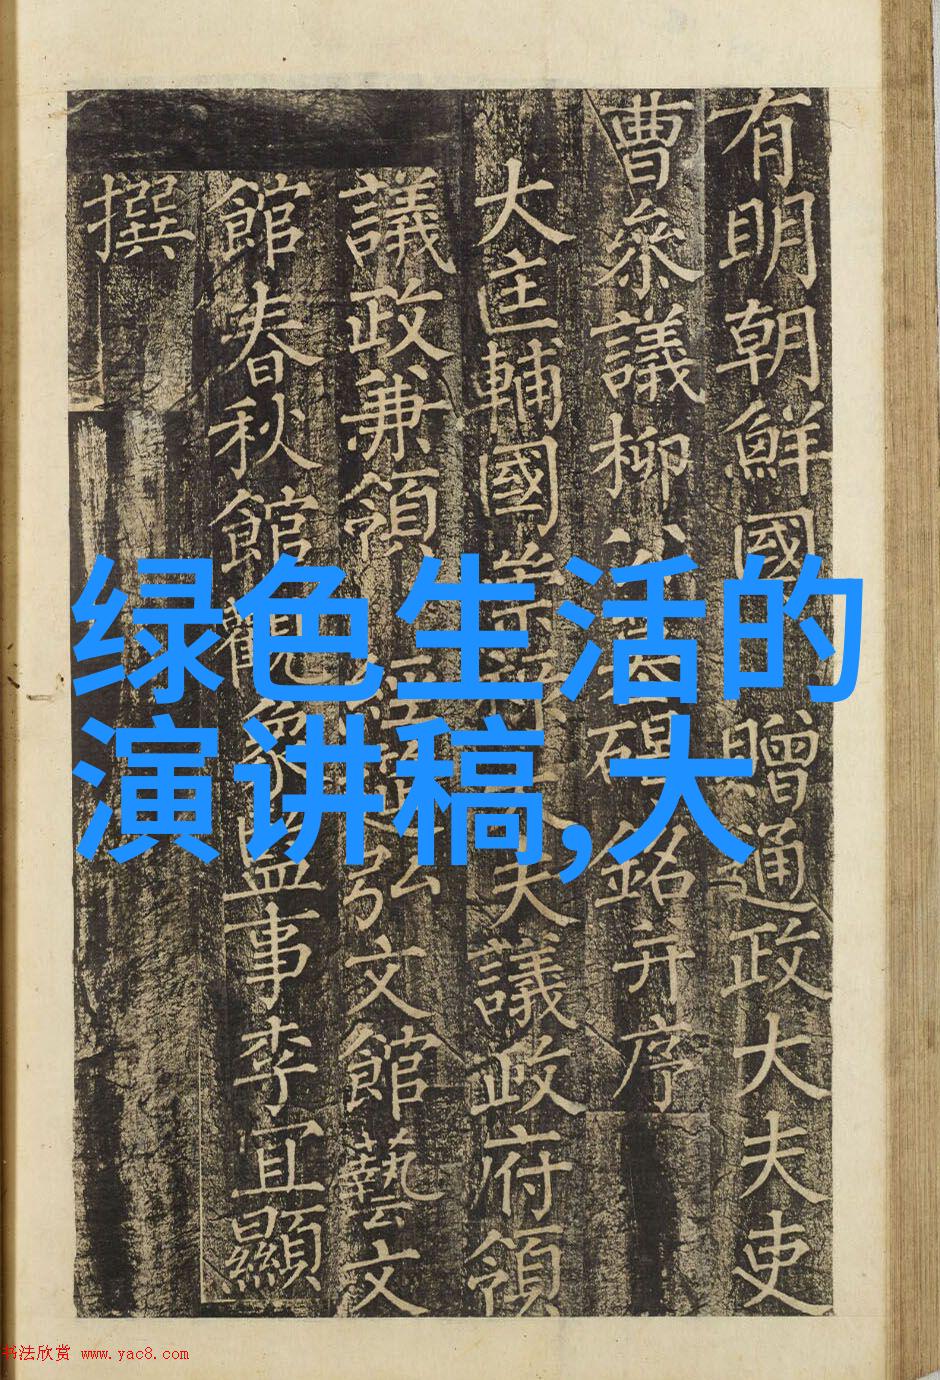 有明朝鮮國贈通政大夫吏
曹參議柳公墓碣銘并序
大匡輔國崇祿大夫議政府領
議政兼領經筵弘文館藝文
館春秋館觀象監事李宜顯
撰
绿色生活的
演讲稿,大
书法欣赏 www.yac8.com